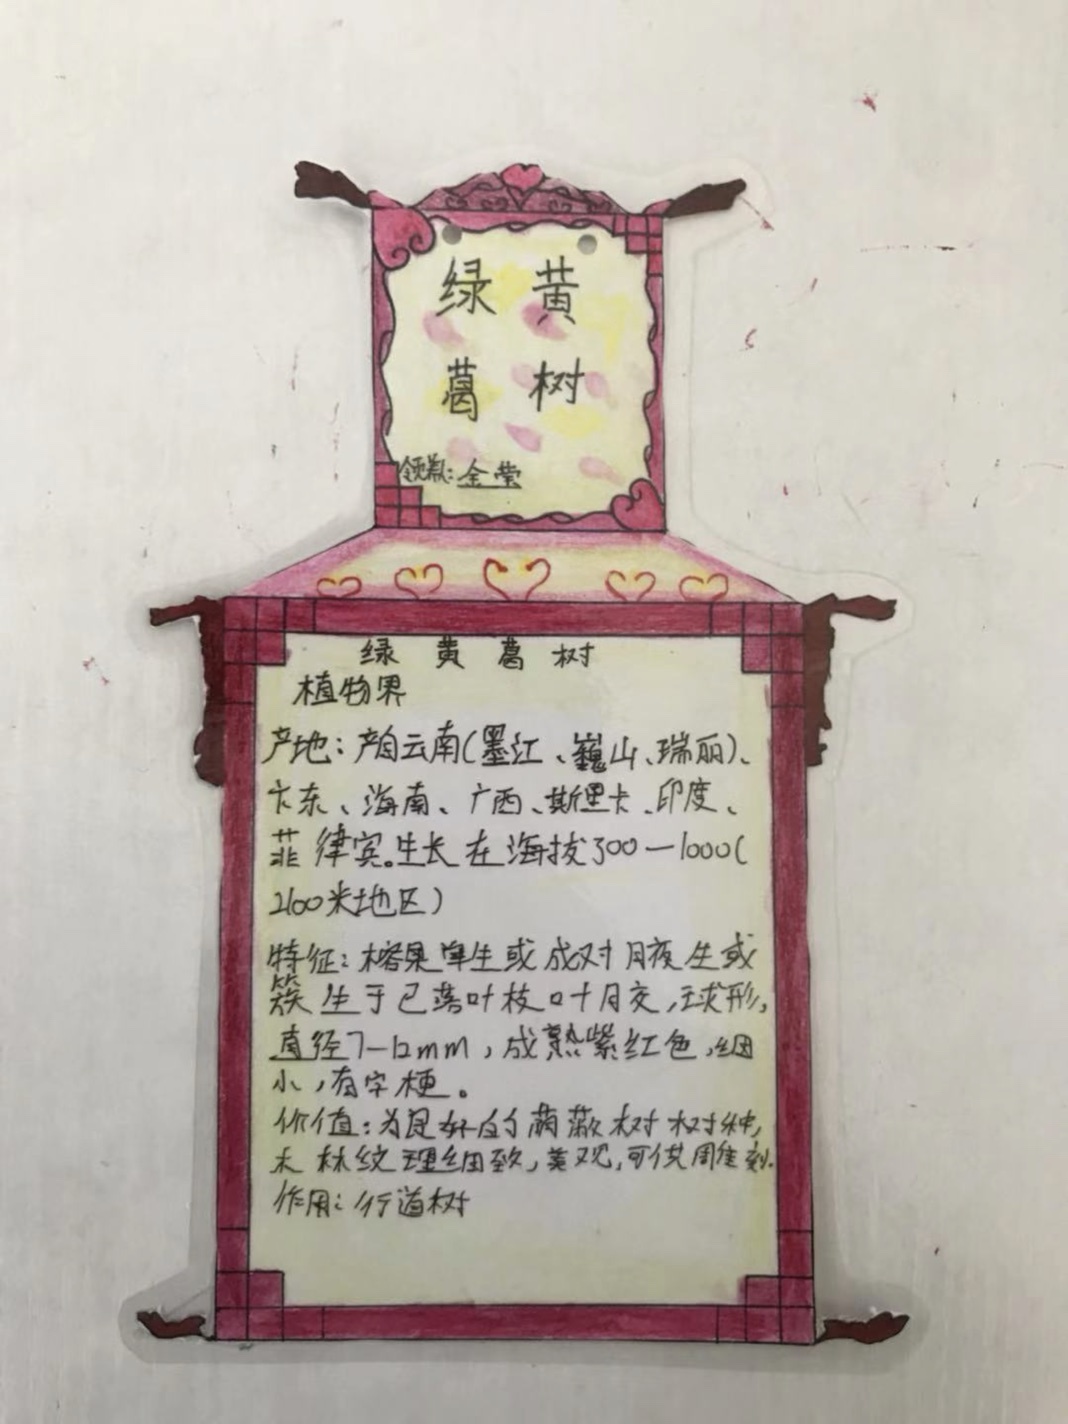 绿 黄
葛 树
领养:金莹
绿 黄 葛 树
植物界
产地:产自云南(墨江、巍山、瑞丽)、
广东、海南、广西、斯里卡、印度、
菲律宾。生长在海拔300—1000(
2100米地区)
特征:榕果单生或成对腋生或
簇生于已落叶枝叶腋,球形,
直径7—12mm,成熟紫红色,细
小,有字梗。
价值:为良好的荫蔽树树种,
木林纹理细致,美观,可供周雕刻.
作用:行道树